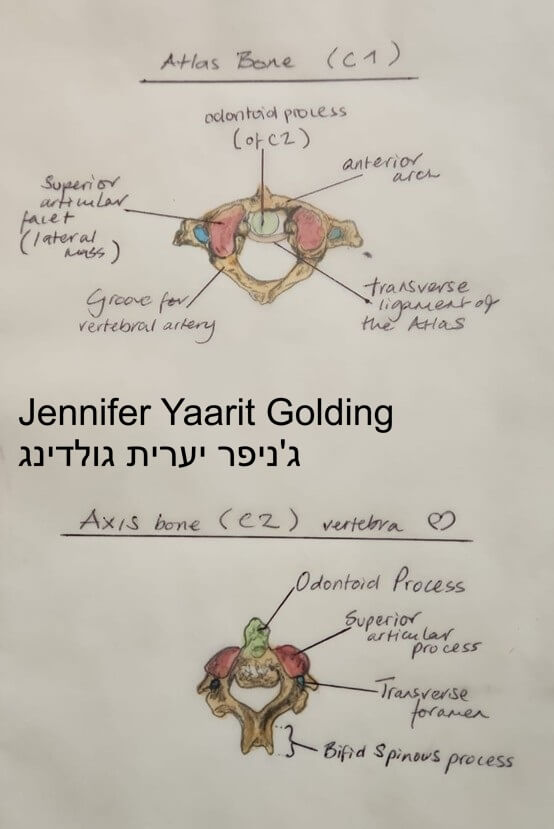 Atlas Bone (C1)
odontoid process
(of C2)
anterior
arch
Superior
articular
facet
(lateral
mass)
Groove for
vertebral artery
transverse
ligament of
the Atlas
Jennifer Yaarit Golding
ג'ניפר יערית גולדינג
Axis bone (C2) vertebra
Odontoid Process
Superior
articular
process
Transverse
foramen
Bifid Spinous process